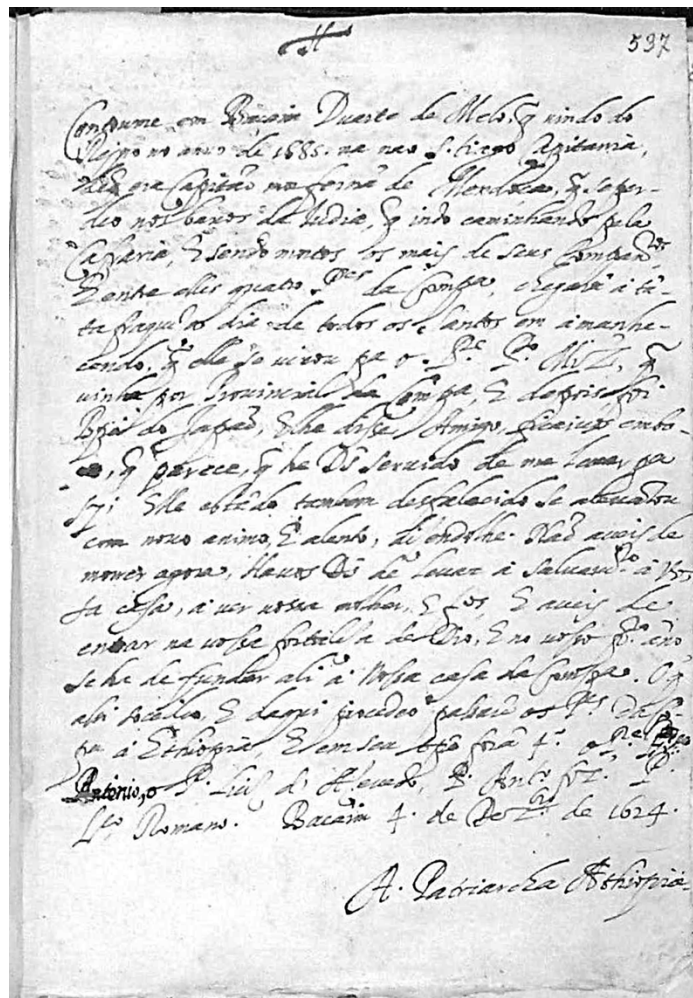 537
Contoume em Baçaim Duarte de Melo, q̃ vindo do
Reyno no anno de 1685. na nao S. tiago Capitania,
de q̃ era Capitão mor fernã de Mendoça, q̃ se per-
deo nos baxos da Iudia, q̃ indo caminhando pela
Cafraria, E sendo mortos os mais de seus Companros
E entre elles quatro Pes da Compa, chegarã a tã-
ta fraqza o dia de todos os Santos em amanhe-
cendo, q̃ elle se virou pa o Pe Po Miz, q̃
vinha por Provincial da Compa, E depois foi
Bpo do Japaõ, E lhe disse, Amigo, ficaivos embo-
q̃ parece, q̃ he Ds servido de me levar pa
sy; Elle estãdo tambem desfalecido se alevantou
com novo animo, E alento, dizendolhe. Naõ aveis de
morrer agora, Havos Ds de levar a salvamto a vos-
sa casa, a ver vossa molher, E fos E aveis de
entrar na vossa fortalesa de Dio, E no vosso po ano
se ha de fundar ali a nossa casa da Compa. O q̃
assi socedeo, E daqui procedeo passarẽ os Pes da Cõ-
pa a Ethiopia, E em seu tpo forã 4. o Pe
Antonio, o P. Luis d' Azevedo, P. Anto frz. P.
Lço Romano. Baçaim 4. de Dezro de 1624.
A. Patriarcha Æthiopiæ